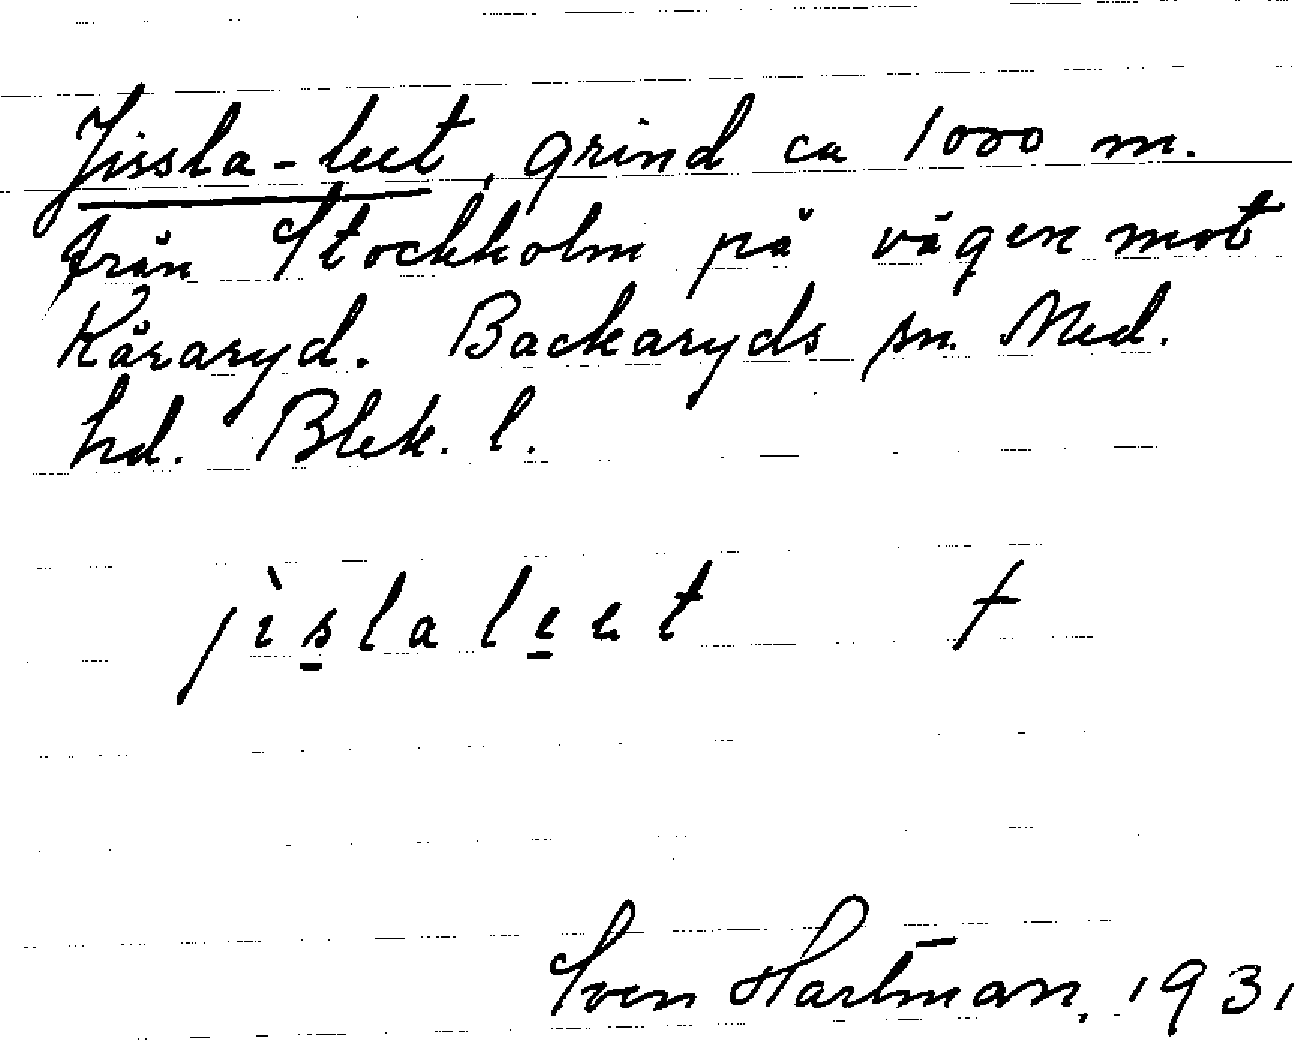 Jissla-leet, grind ca 1000 m.
från Stockholm på vägen mot
Kåraryd. Backaryds sn. Med.
hd. Blek. l.
jìs̲lale̲et †
Sven Hartman, 1931